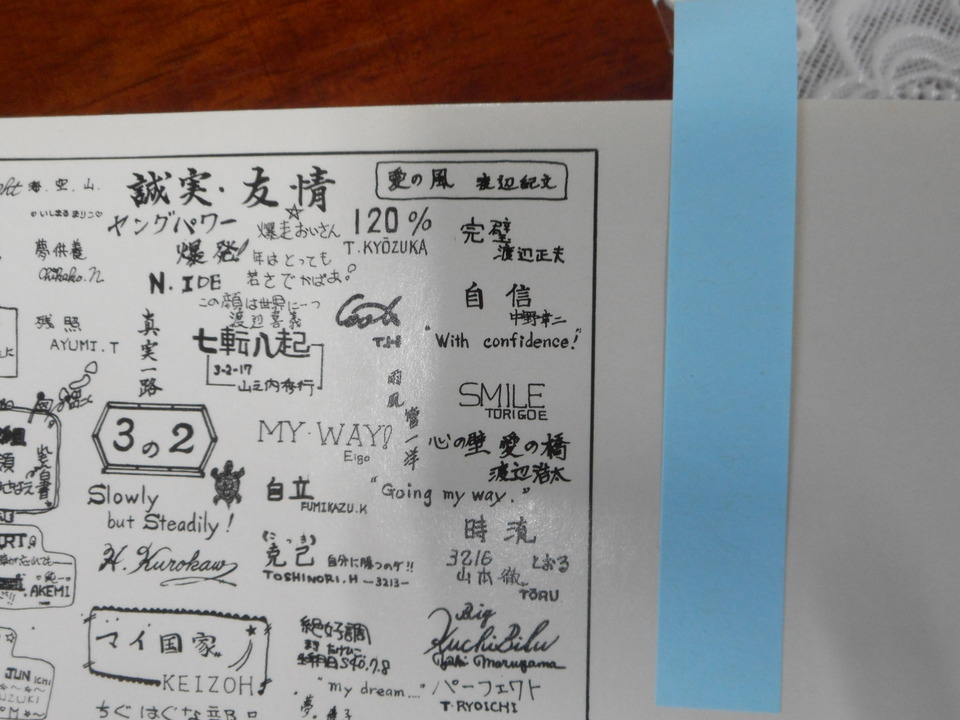 海.空.山.
誠実・友情
愛の風 渡辺紀文
ヤングパワー
爆発!
N. IDE
爆走おじさん
年はとっても
若さでがばお?
120%
T.KYŌZUKA
完璧
渡辺正夫
夢供養
Chihoko.n
この顔は世界に一つ
渡辺喜義
自信
中野幸二
"With confidence!"
残照
AYUMI.T
真実一路
七転八起
3-2-17
山之内秀行
T.H
雨風
SMILE
TORIGOE
3の2
MY・WAY!
Eigo
心の壁 愛の橋
渡辺浩太
Slowly
but Steadily!
自立
FUMIKAZU.K
"Going my way."
H. Kurokawa
克己 自分に勝つのダ!!
TOSHINORI.H —3213—
時流
3216 とおる
山本徹
TŌRU
AKEMI
マイ国家
KEIZOH
絶好調
S40.7.8
Big
KuchiBilu
Maruyama
JUN ICHI
"my dream...."
パーフェクト
T.RYOICHI